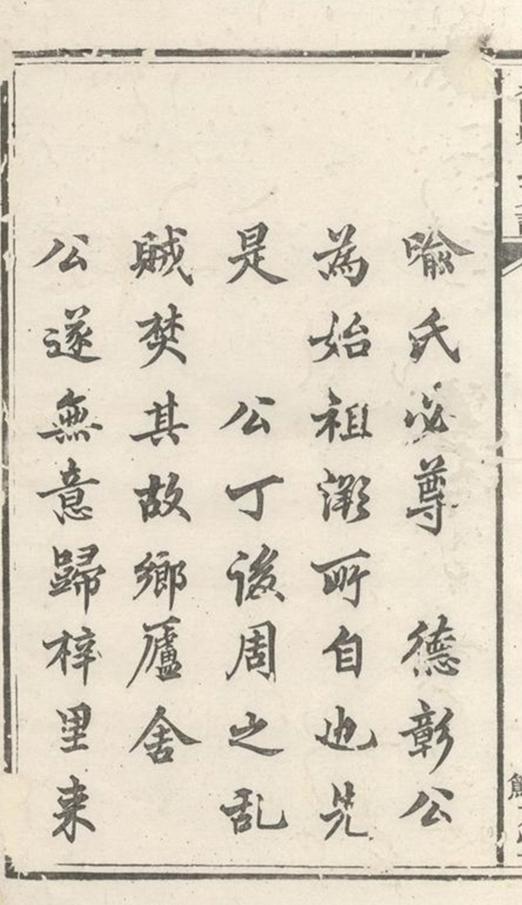 喻氏必尊　德彰公
為始祖溯所自也先
是　公丁後周之乱
賊焚其故鄉廬舍
公遂無意歸梓里来